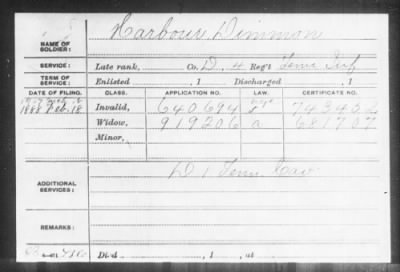 NAME OF SOLDIER: Harbour Dimmon
SERVICE: Late rank, Co. D, 4 Reg't Tenn Inf
TERM OF SERVICE: Enlisted , 1 Discharged , 1
DATE OF FILING. CLASS. APPLICATION NO. LAW. CERTIFICATE NO.
1888 Feb. 18 Invalid, 640694 743452
Widow, 919206 a 681707
Minor,
ADDITIONAL SERVICES: D 1 Tenn. Cav
REMARKS:
Died , 1 , at